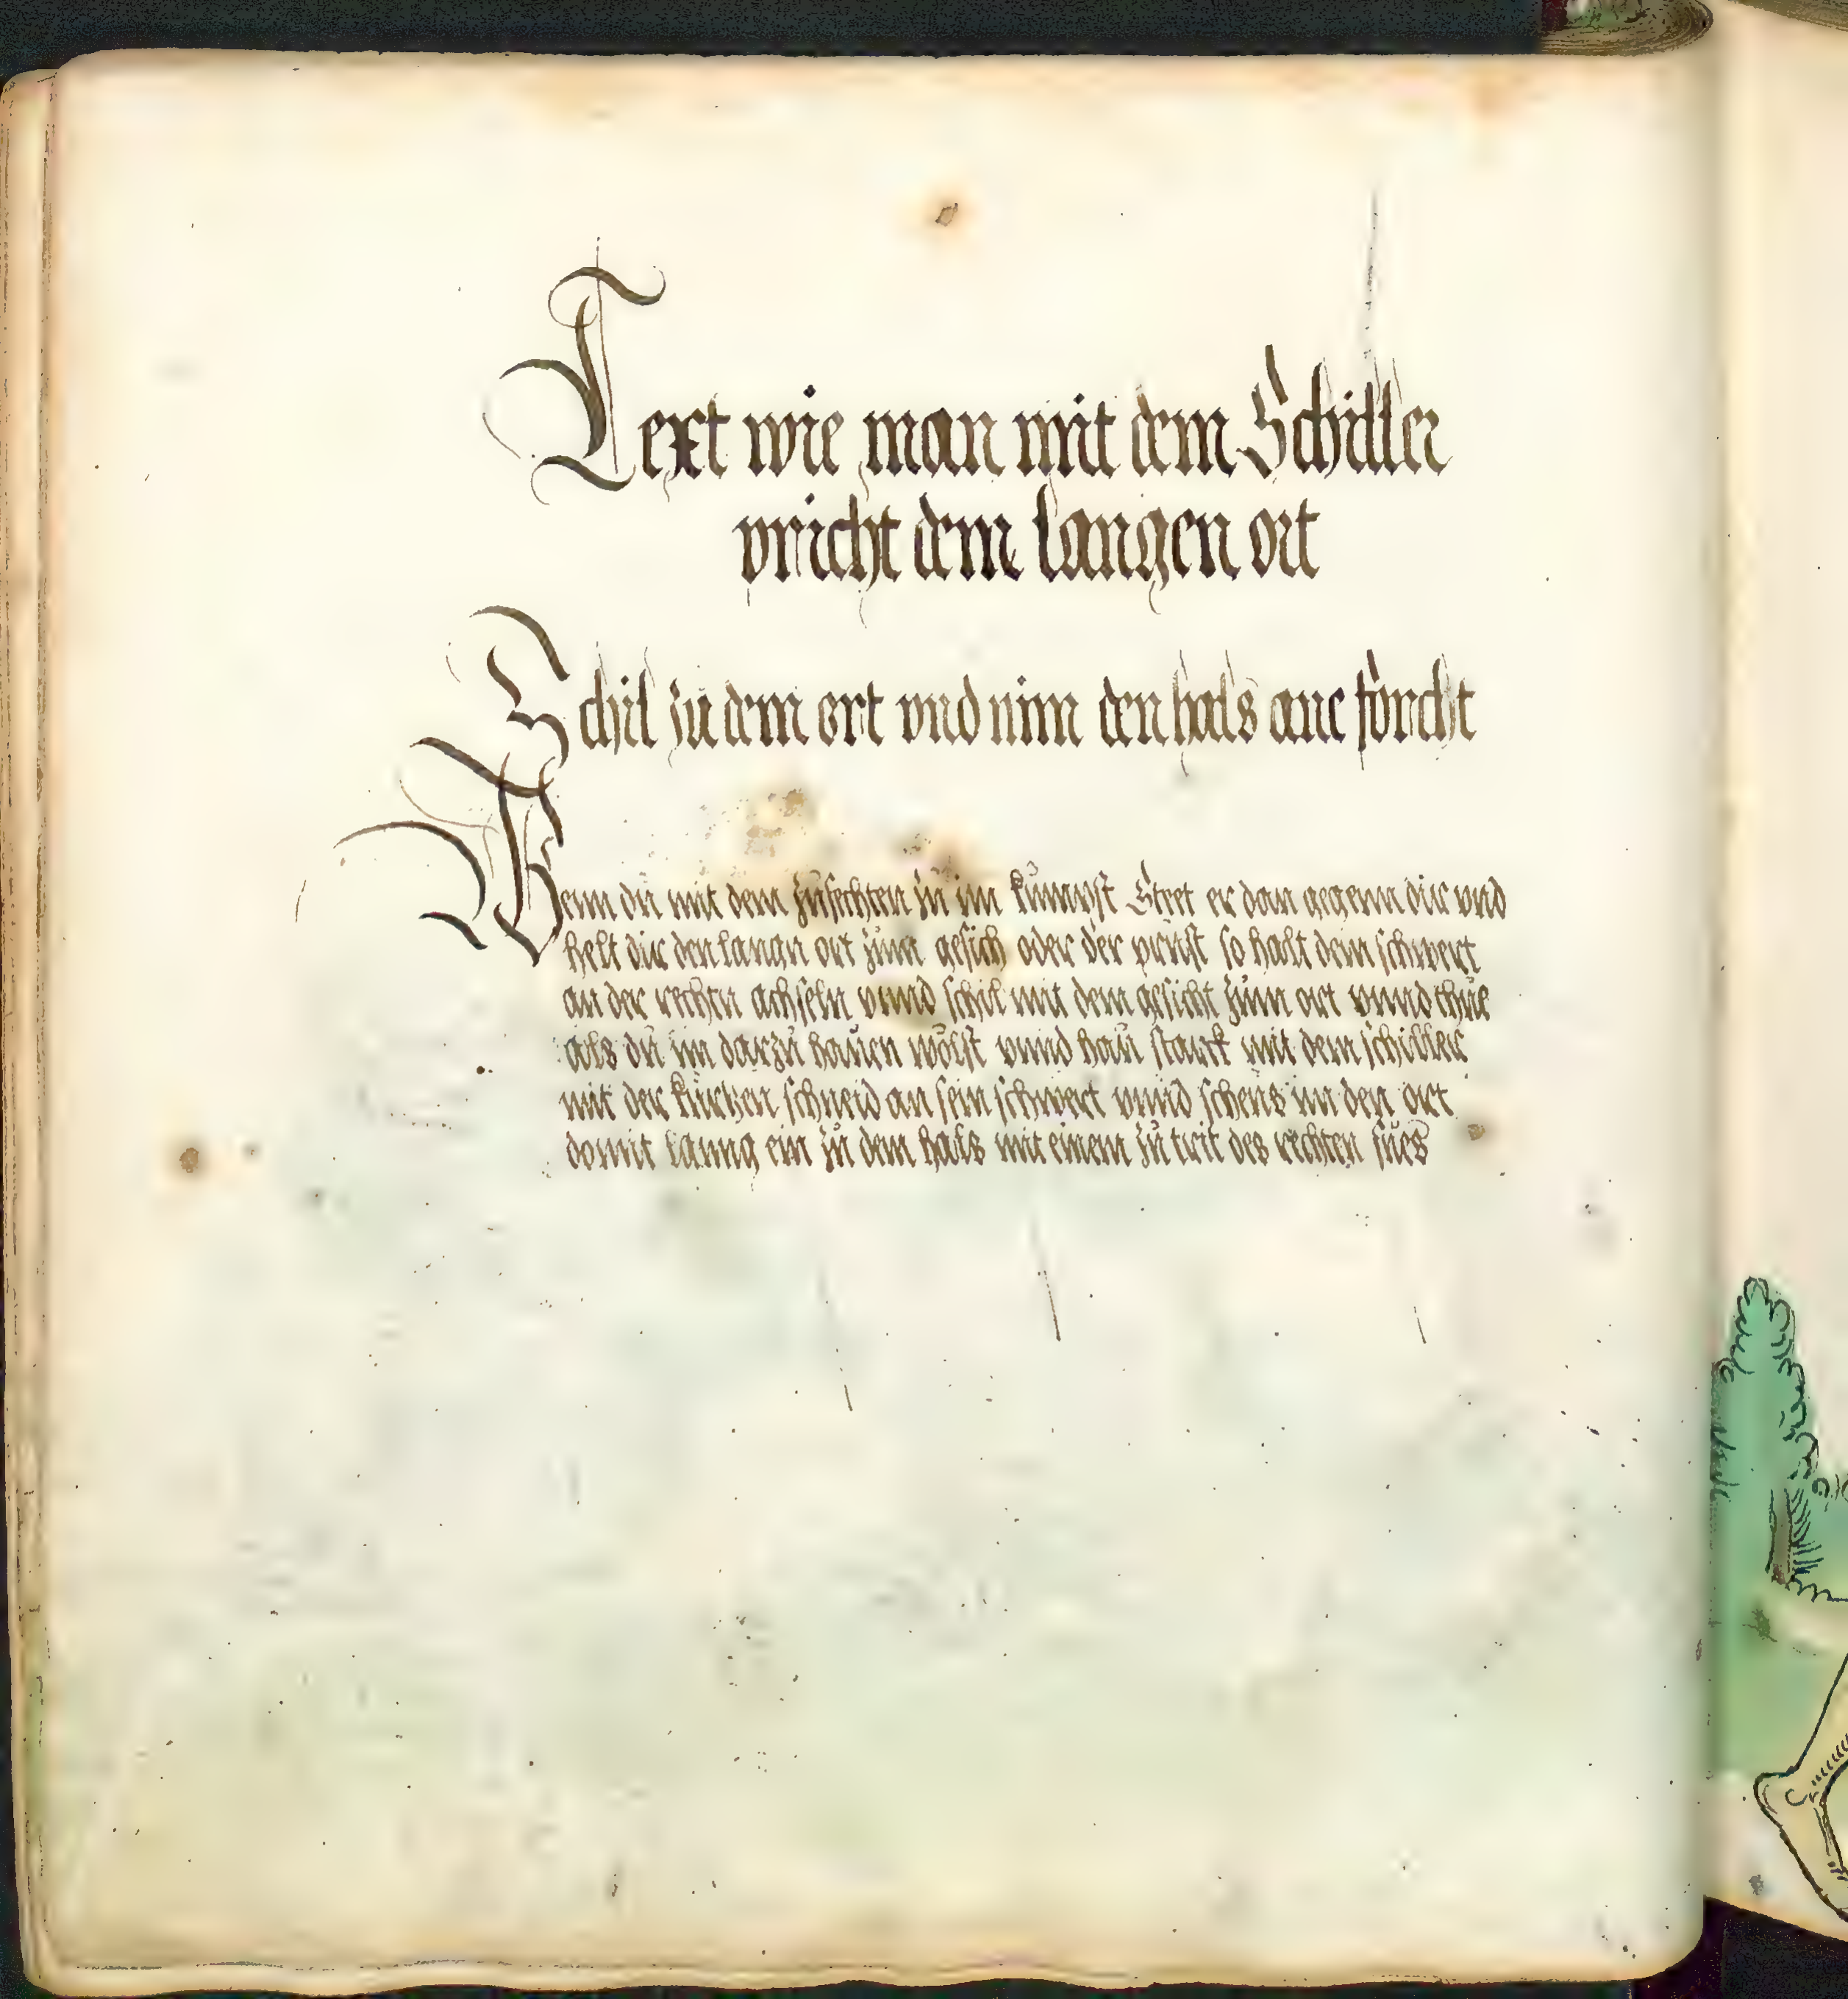 Text wie man mit dem Schiller
pricht dem langen ort
Schil zu dem ort vnd nim den hals ane förcht
Wenn du mit dem zufechten zu im kumpst Stet er dan gegenn dir vnd
helt dir den langn ort zum gesich oder der prust so halt dein schwert
an der rechtn achseln vnnd schil mit dem gesicht zum ort vnnd thue
als du im darzu hauen wolst vnnd hau starck mit dem schiller
mit der kurtzen schneid an sein schwert vnnd scheus im den ort
domit lanng ein zu dem hals mit einem zu trit des rechten fues